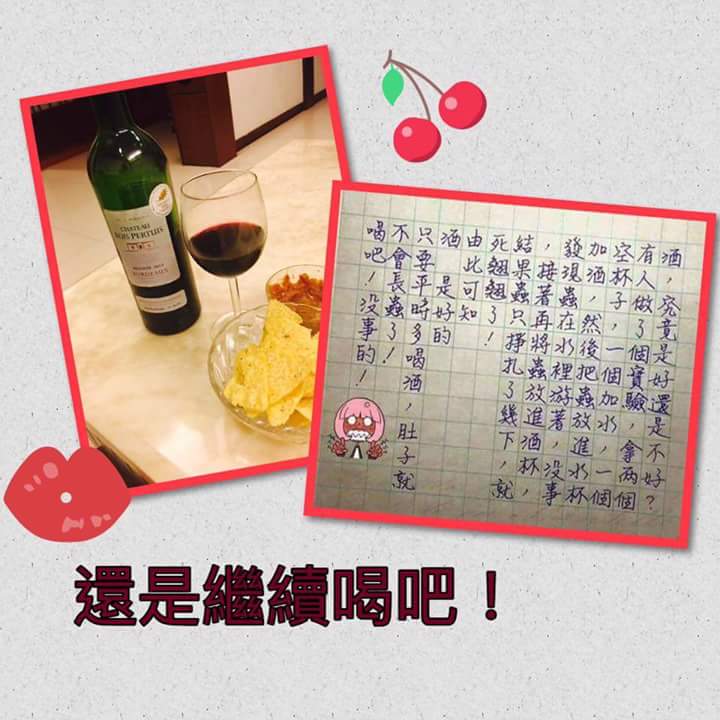 CHATEAU
BOIS PERTUIS
BORDEAUX
酒,究竟是好還是不好?
有人做了個實驗,拿兩個
空杯子,一個加水,一個
加酒,然後把蟲放進水杯
發現蟲在水裡游著,沒事
,接著再將蟲放進酒杯,
結果蟲只掙扎了幾下,就
死翹翹了!
由此可知
酒是好的
只要平時多喝酒,肚子就
不會長蟲了!
喝吧!沒事的!
還是繼續喝吧!